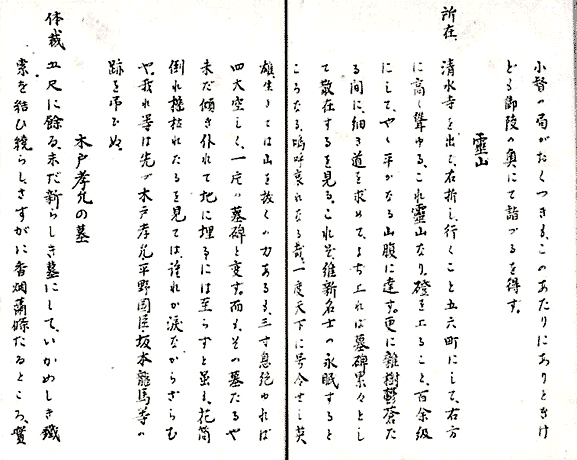 小督の局がおくつきも、このあたりにありときけ
ども御陵の奥にて詣づるを得す。
靈山
所在、清水寺を出で、右折し、行くこと五六町にして、右方
に高く聳ゆる、これ靈山なり。磴を上ること、百余級
にして、やゝ平かなる山腹に達す。更に雜樹鬱蒼た
る間に、細き道を求めて、よぢ上れば墓碑累々とし
て散在するを見る、これぞ維新名士の永眠すると
ころなる、嗚呼哀れなる哉、一度天下に号令せし英
雄、生きては山を拔くの力あるも、三寸息絶ゆれば
四大空しく、一度の墓碑と変す。而も、その墓たるや
未だ傾き仆れて地に埋るには至らずと虽も、花筒
倒れ樒枯れたるを見ては、誰れか涙なからざらむ
や、我れ等は先づ木戸孝允平野國臣・坂本龍馬等の
跡を吊ひぬ。
木戸孝允の墓
体裁 五尺に餘る、未だ新らしき墓にして、いかめしき鐵
索を結ひ繞らし、さすがに香烟蕭條たるところ、實